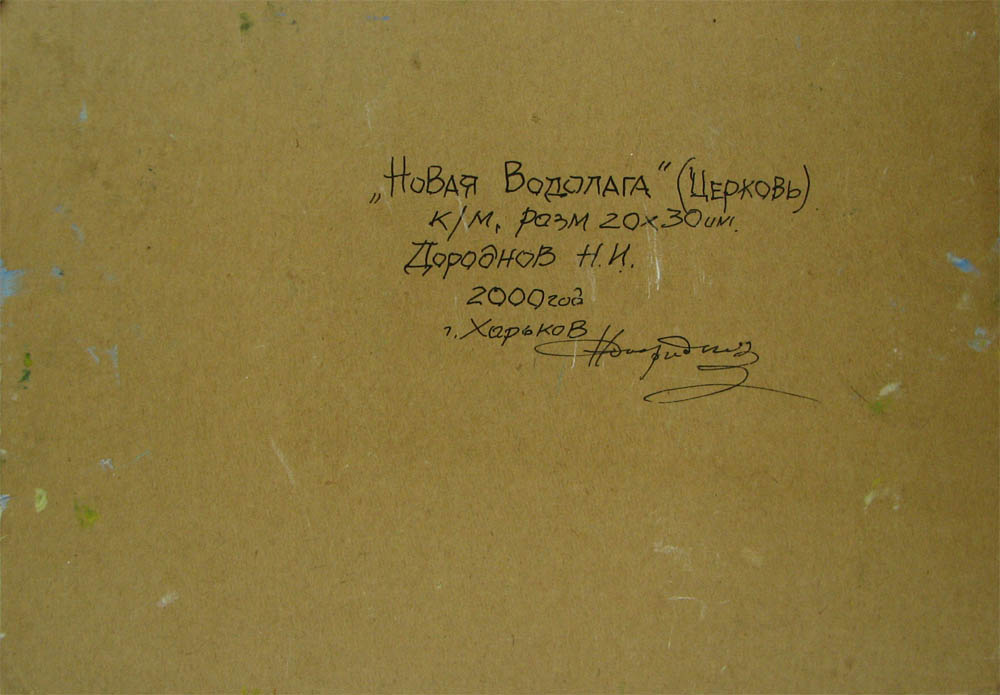 „Новая Водолага" (Церковь)
к/м, разм 20х30
Дороднов Н.И.
2000год
г. Харьков